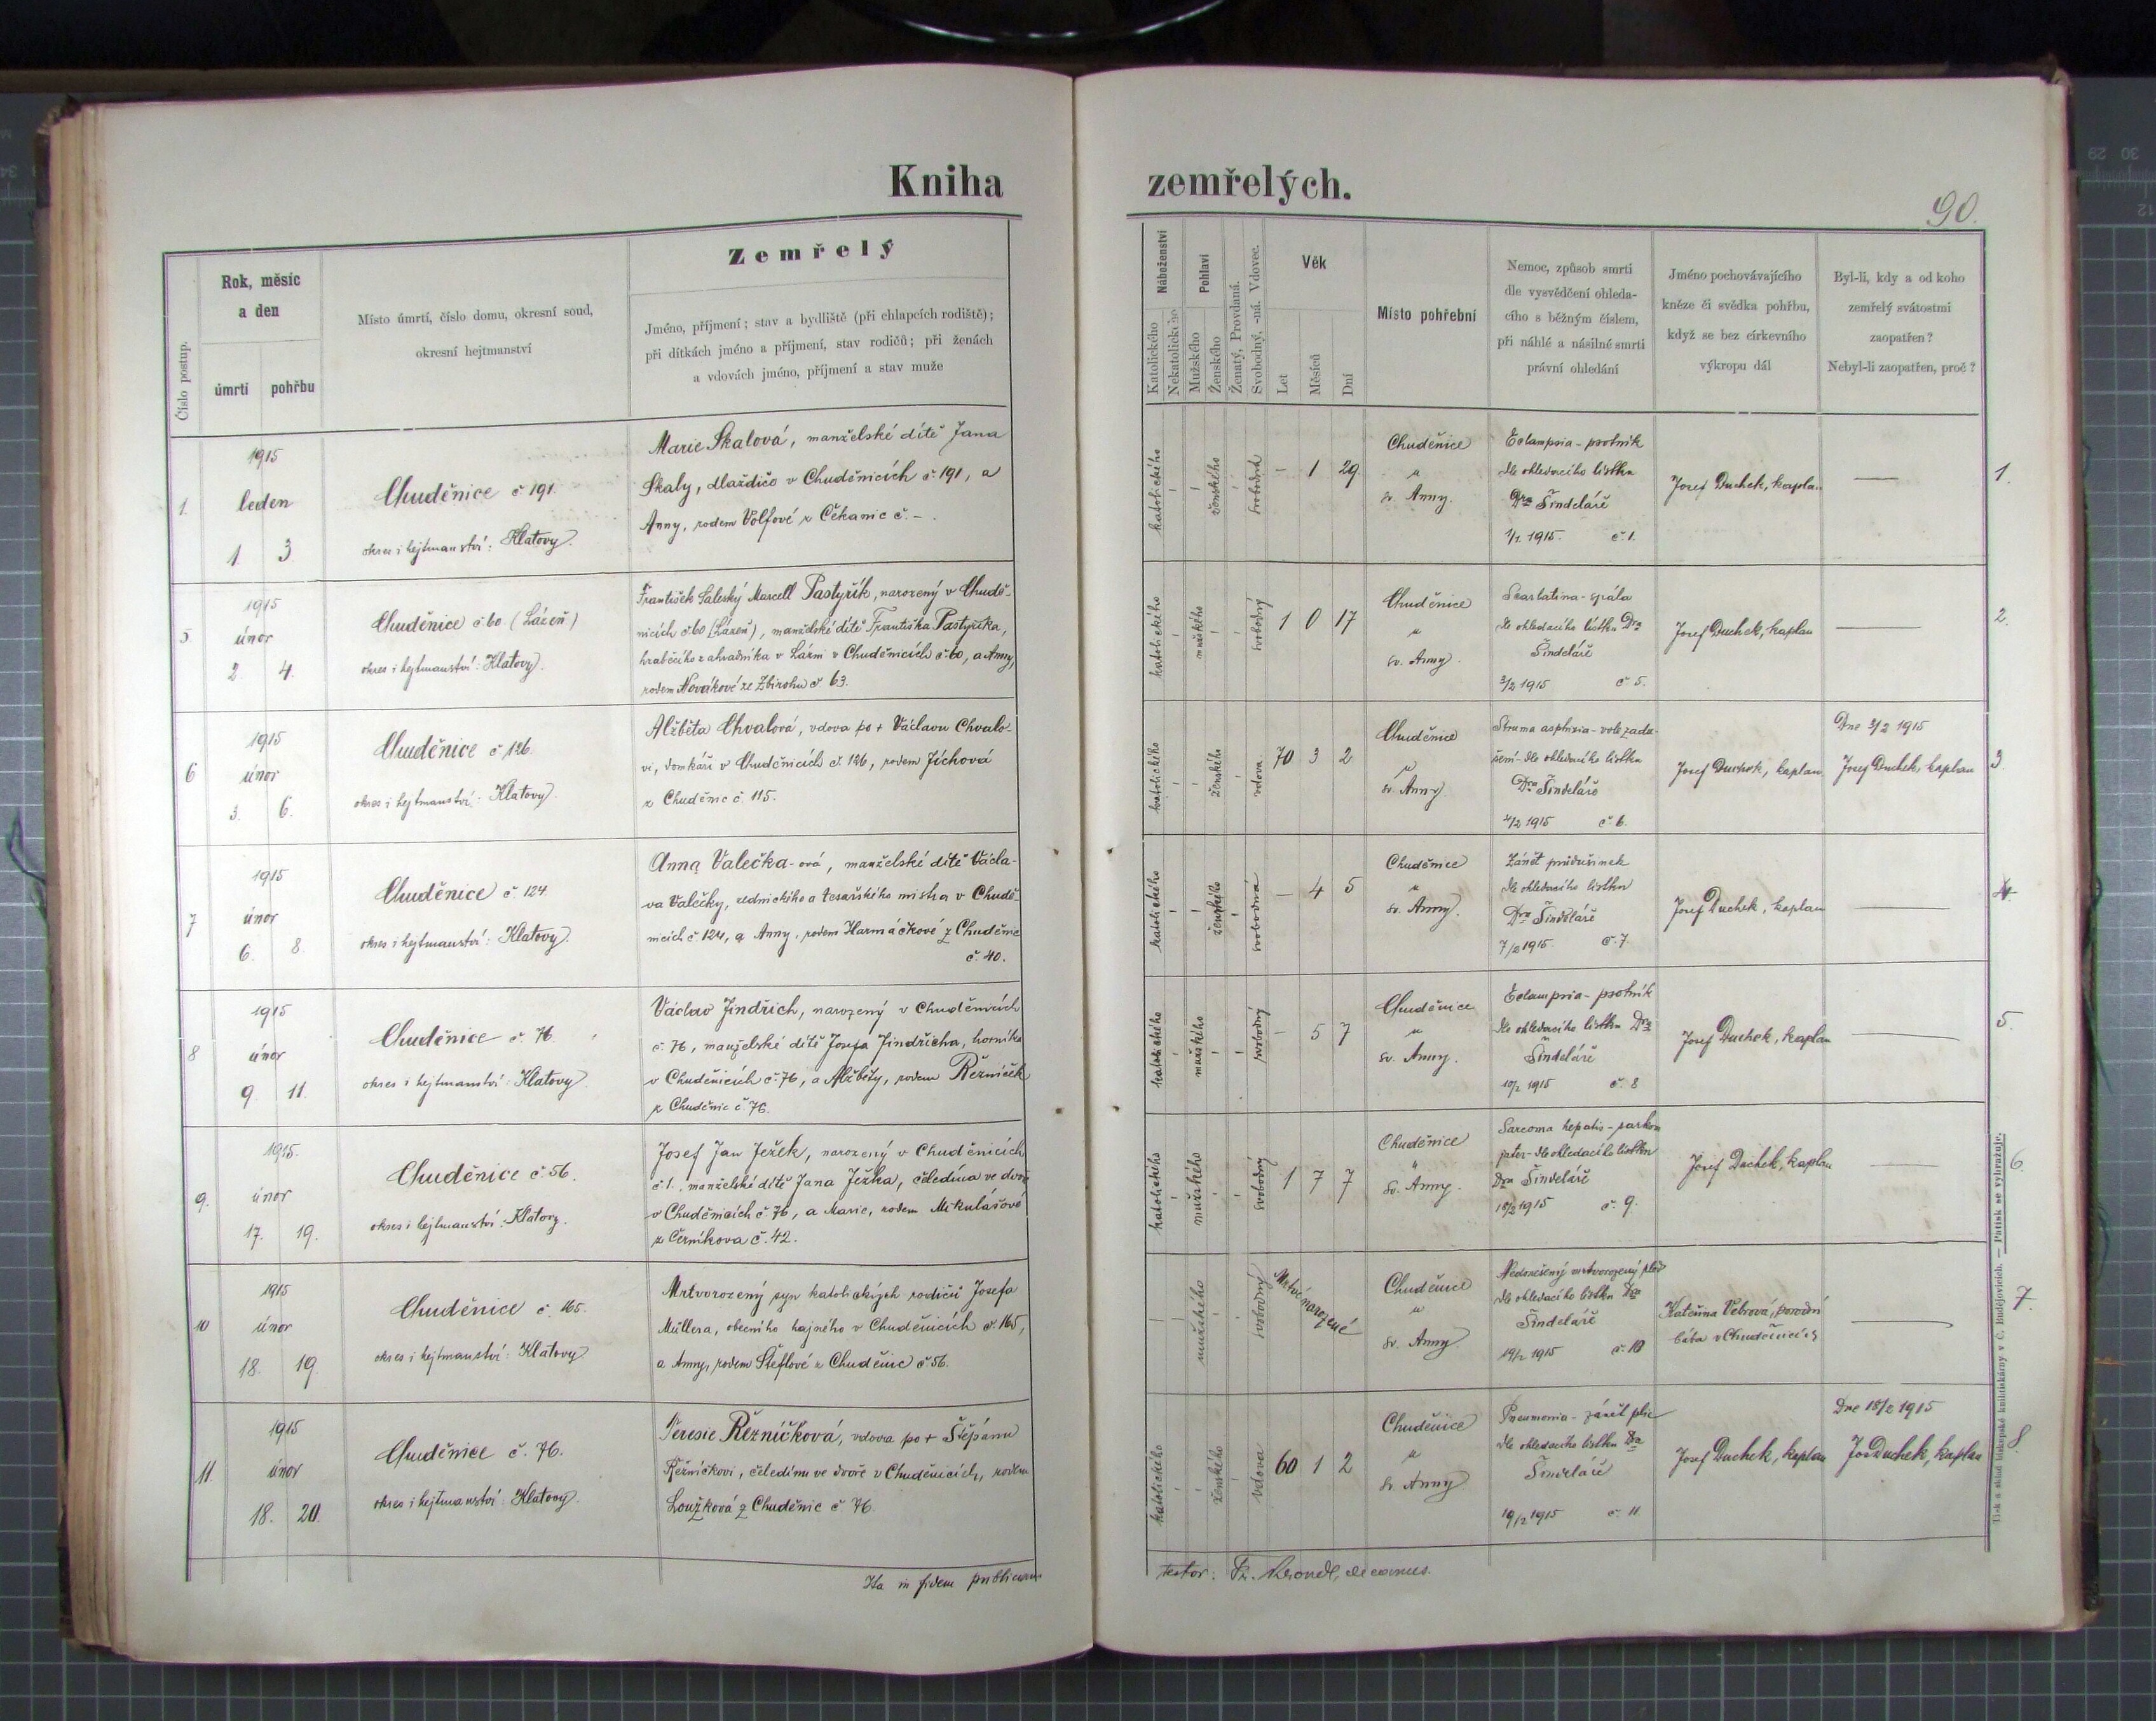 Kniha
zemřelých.
90.
Číslo postup.
Rok, měsíc
a den
úmrtí
pohřbu
Místo úmrtí, číslo domu, okresní soud,
okresní hejtmanství
Zemřelý
Jméno, příjmení; stav a bydliště (při chlapcích rodiště);
při dítkách jméno a příjmení, stav rodičů; při ženách
a vdovách jméno, příjmení a stav muže
Náboženství
Katolického
Nekatolického
Pohlaví
Mužského
Ženského
Ženatý, Provdaná.
Svobodný, -ná. Vdovec.
Věk
Let
Měsíců
Dní
Místo pohřební
Nemoc, způsob smrti
dle vysvědčení ohleda-
cího s běžným číslem,
při náhlé a násilné smrti
právní ohledání
Jméno pochovávajícího
kněze či svědka pohřbu,
když se bez církevního
výkropu dál
Byl-li, kdy a od koho
zemřelý svátostmi
zaopatřen?
Nebyl-li zaopatřen, proč?
1.
1915
leden
1. 3.
Chuděnice č 191.
okres i hejtmanství: Klatovy.
Marie Skalová, manželské dítě Jana
Skaly, dlaždiče v Chuděnicích č. 191, a
Anny, rodem Volfové z Čekanic č. –.
katolického
ženského
svobodná
– 1 29
Chuděnice
u
sv. Anny.
Eclampsia - psotník
dle ohledacího lístku
Dra Šindeláře
1/1. 1915. č. 1.
Josef Duchek, kaplan
—
1.
5.
1915
únor
2. 4.
Chuděnice č 60 (Lázeň)
okres i hejtmanství: Klatovy.
František Saleský Marcell Pastyřík, narozený v Chudě-
nicích č. 60 (Lázeň), manželské dítě Františka Pastyříka,
hraběcího zahradníka v Lázni v Chuděnicích č. 60, a Anny,
rodem Novákové ze Zbirohu č. 63.
katolického
mužského
svobodný
1 0 17
Chuděnice
u
sv. Anny.
Scarlatina - spála
dle ohledacího lístku Dra
Šindeláře
3/2 1915 č 5.
Josef Duchek, kaplan
—
2.
6
1915
únor
3. 6.
Chuděnice č 126.
okres i hejtmanství: Klatovy.
Alžběta Chvalová, vdova po + Václavu Chvalo-
vi, domkáři v Chuděnicích č. 126, rodem Jíchová
z Chuděnic č. 115.
katolického
ženského
vdova
70 3 2
Chuděnice
u
sv. Anny.
Struma asphixia - vole zadu-
šení - dle ohledacího lístku
Dra Šindeláře
4/2 1915 č 6.
Josef Duchek, kaplan
Dne 3/2 1915
Josef Duchek, kaplan
3.
7
1915
únor
6. 8.
Chuděnice č. 124
okres i hejtmanství: Klatovy.
Anna Valečka-ová, manželské dítě Václa-
va Valečky, zednického a tesařského mistra v Chudě-
nicích č. 124, a Anny, rodem Harmáčkové z Chuděnic
č. 40.
katolického
ženského
svobodná
– 4 5
Chuděnice
u
sv. Anny.
Zánět průdušinek
dle ohledacího lístku
Dra Šindeláře
7/2 1915 č. 7.
Josef Duchek, kaplan
—
4.
8
1915
únor
9. 11.
Chuděnice č. 76.
okres i hejtmanství: Klatovy.
Václav Jindřich, narozený v Chuděnicích
č. 76, manželské dítě Josefa Jindřicha, horníka
v Chuděnicích č. 76, a Alžběty, rodem Řezníček
z Chuděnic č. 76.
katolického
mužského
svobodný
– 5 7
Chuděnice
u
sv. Anny.
Eclampsia - psotník
dle ohledacího lístku Dra
Šindeláře
10/2 1915 č. 8
Josef Duchek, kaplan
—
5.
9.
1915.
únor
17. 19.
Chuděnice č. 56.
okres i hejtmanství: Klatovy.
Josef Jan Ježek, narozený v Chuděnicích
č 1., manželské dítě Jana Ježka, čeledína ve dvoře
v Chuděnicích č. 76, a Marie, rodem Mikulášové
z Černíkova č. 42.
katolického
mužského
svobodný
1 7 7
Chuděnice
u
sv. Anny.
Sarcoma hepatis - sarkom
jater - dle ohledacího lístku
Dra Šindeláře
18/2 1915 č. 9.
Josef Duchek, kaplan
—
6.
10
1915
únor
18. 19
Chuděnice č. 165.
okres i hejtmanství: Klatovy
Mrtvorozený syn katolických rodičů Josefa
Müllera, obecního hajného v Chuděnicích č. 165,
a Anny, rodem Šteflové z Chuděnic č 56.
mužského
svobodný
Mrtvě narozené
Chuděnice
u
sv. Anny.
Nedonešený mrtvorozený plod
dle ohledacího lístku Dra
Šindeláře
19/2 1915 č. 10
Kateřina Vebrová, porodní
bába v Chuděnicích
—
7.
11.
1915
únor
18. 20.
Chuděnice č. 76.
okres i hejtmanství: Klatovy.
Teresie Řezníčková, vdova po + Štěpánu
Řezníčkovi, čeledínu ve dvoře v Chuděnicích, rodem
Loužková z Chuděnic č 76.
katolického
ženského
vdova
60 1 2
Chuděnice
u
sv. Anny
Pneumonia - zánět plic
dle ohledacího lístku Dra
Šindeláře
19/2 1915 č. 11
Josef Duchek, kaplan
Dne 18/2 1915
Jos Duchek, kaplan
8.
Ita in fidem publicam
testor: Fr.
Tisk a sklad biskupské knihtiskárny v Č. Budějovicích. — Patisk se vyhražuje.